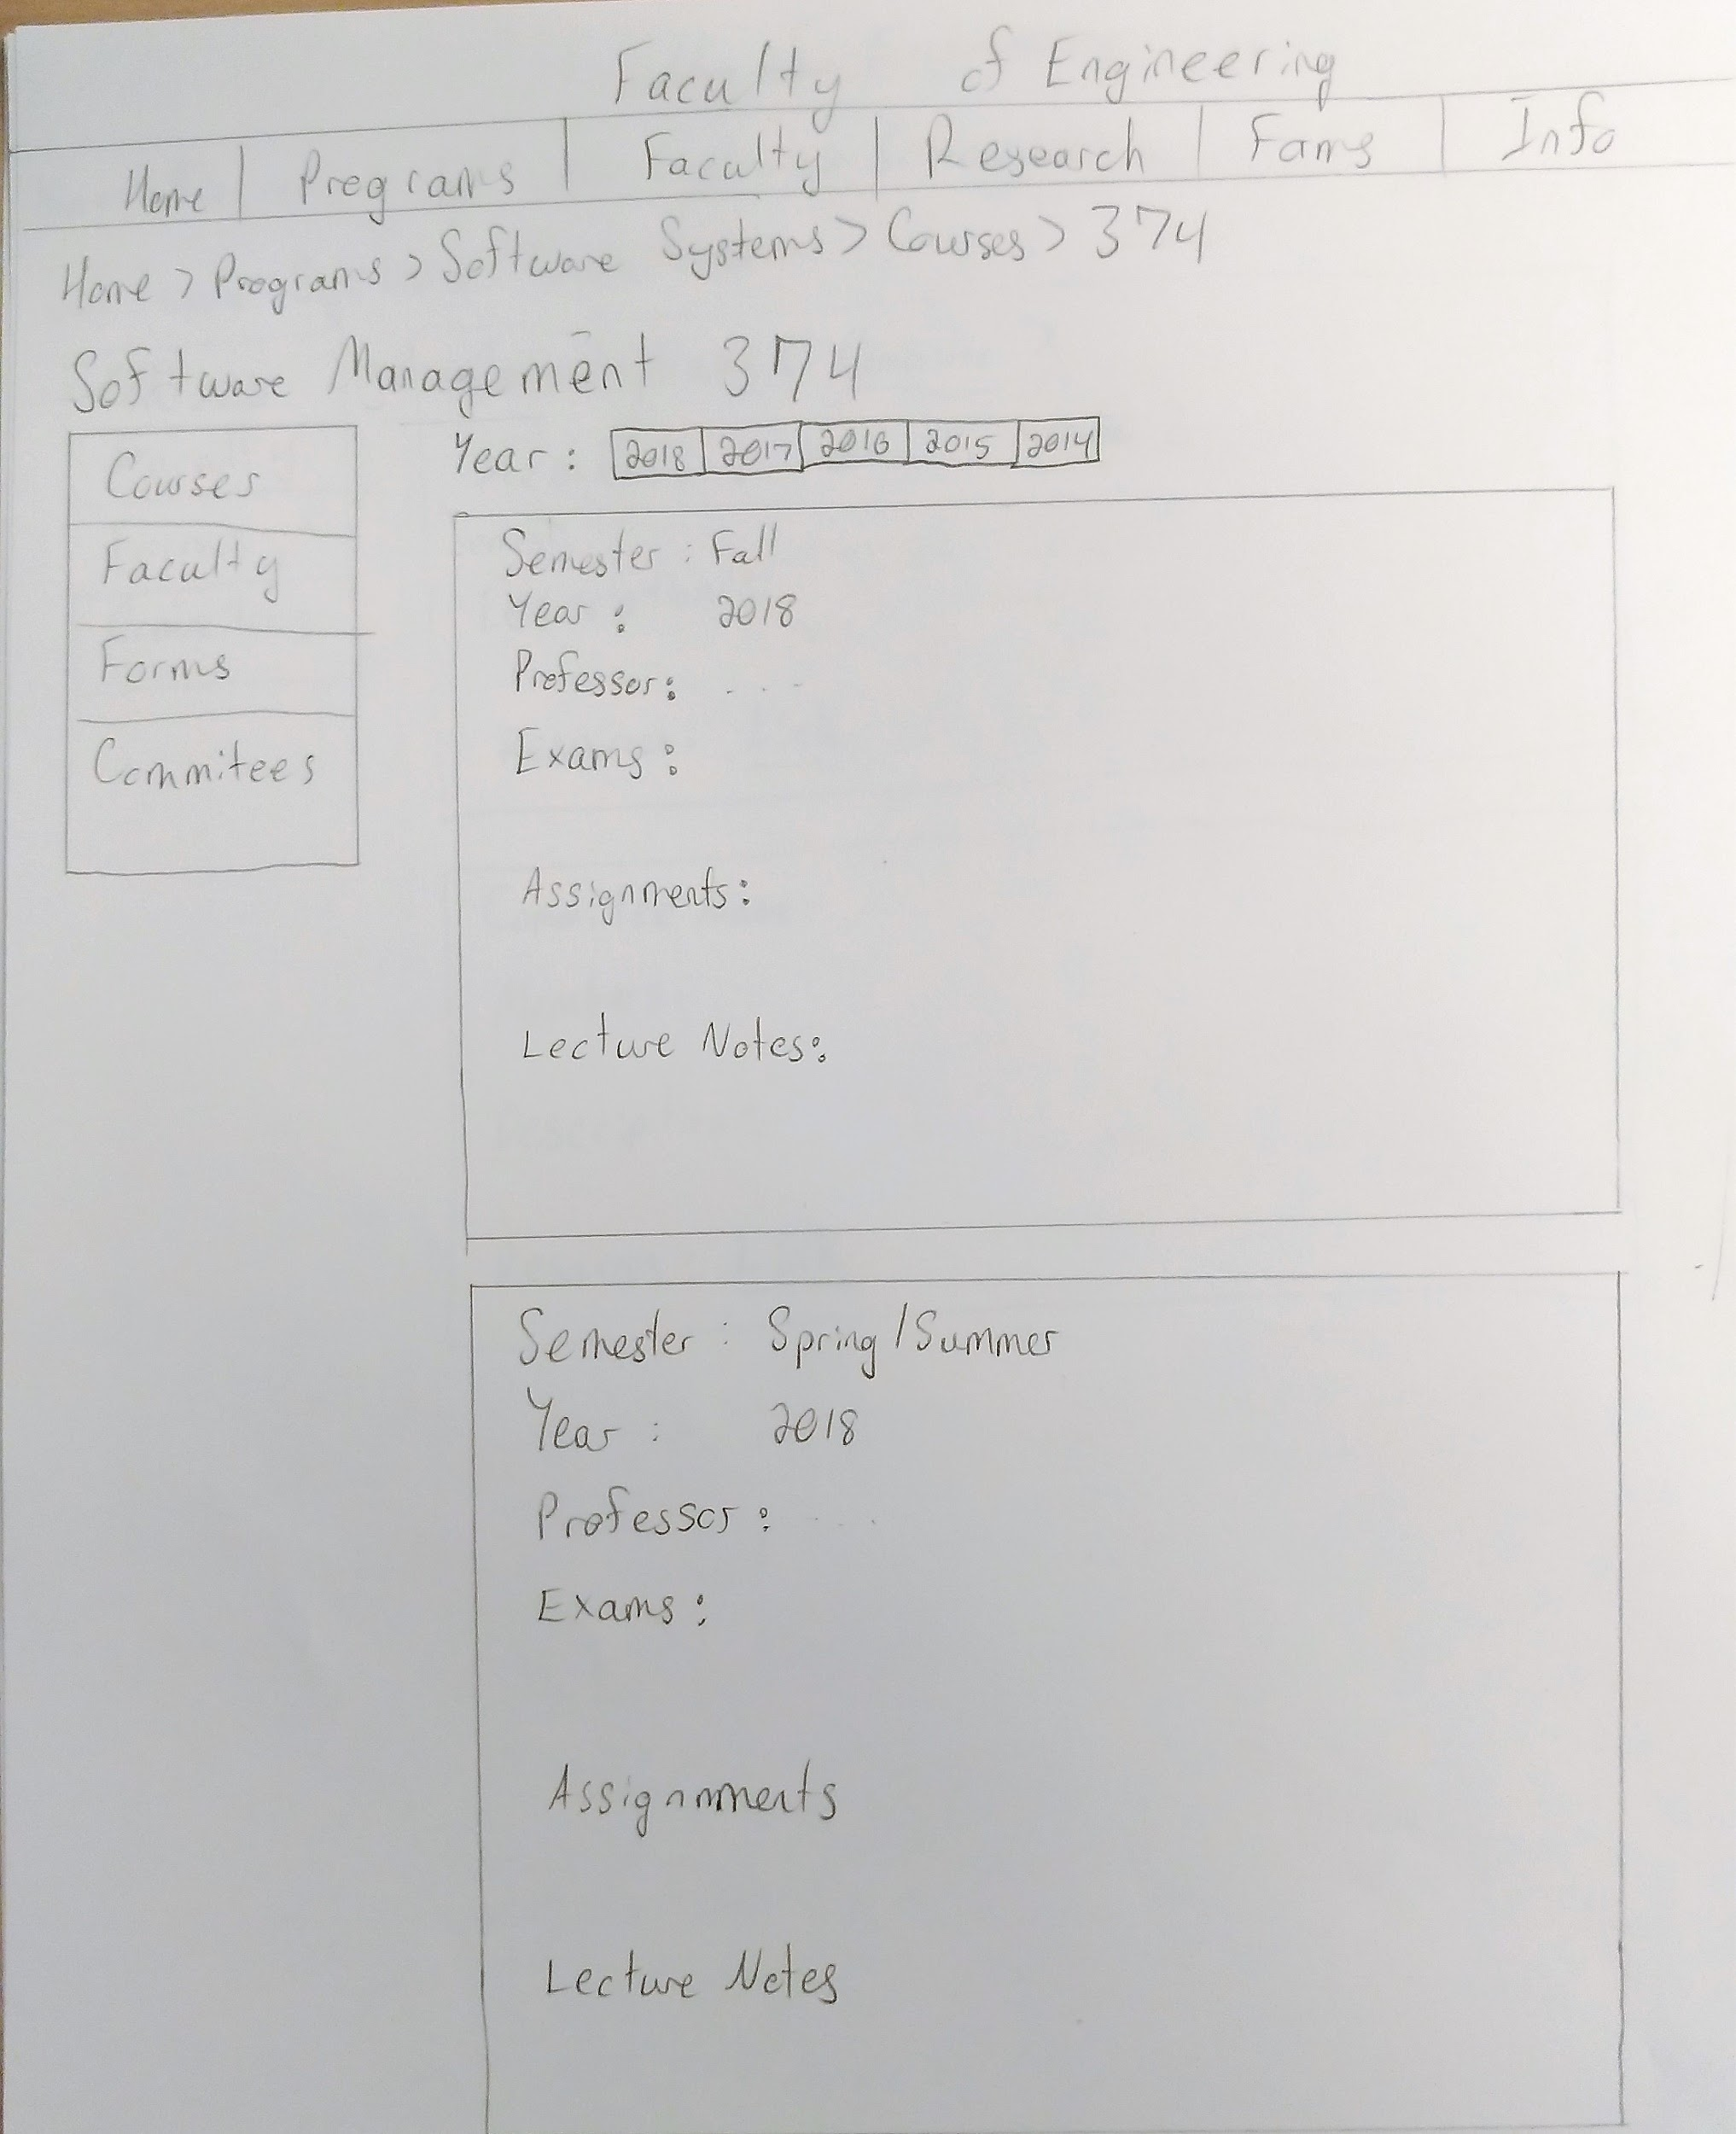 Faculty of Engineering
Home | Programs | Faculty | Research | Forms | Info
Home > Programs > Software Systems > Courses > 374
Software Management 374
Year: 2018 2017 2016 2015 2014
Courses
Faculty
Forms
Commitees
Semester : Fall
Year : 2018
Professor: ...
Exams :
Assignments:
Lecture Notes:
Semester : Spring/Summer
Year : 2018
Professor : ...
Exams :
Assignmments
Lecture Notes